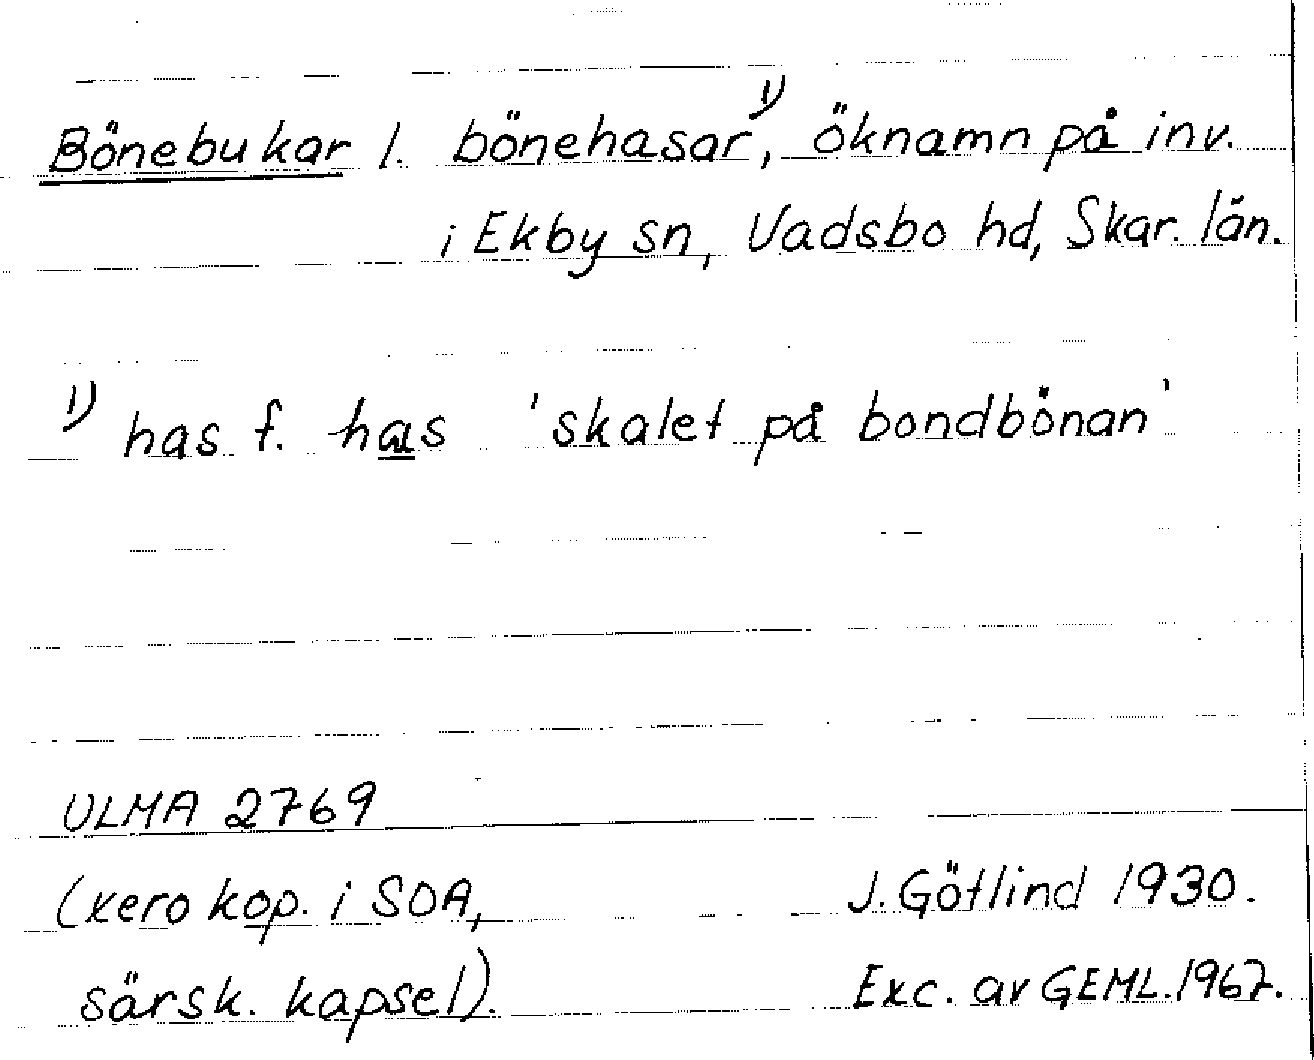 Bönebukar l. bönehasar¹⁾, öknamn på inv.
i Ekby sn, Vadsbo hd, Skar. län.
¹⁾ has f. has 'skalet på bondbönan'
ULMA 2769
(xerokop. i SOA, J. Götlind 1930.
särsk. kapsel). Exc. av GEML. 1967.